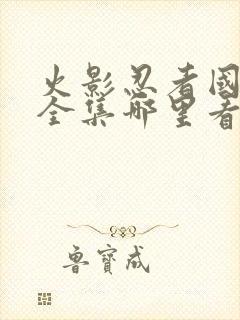 火影忍者國
全集哪里看
魯寶成